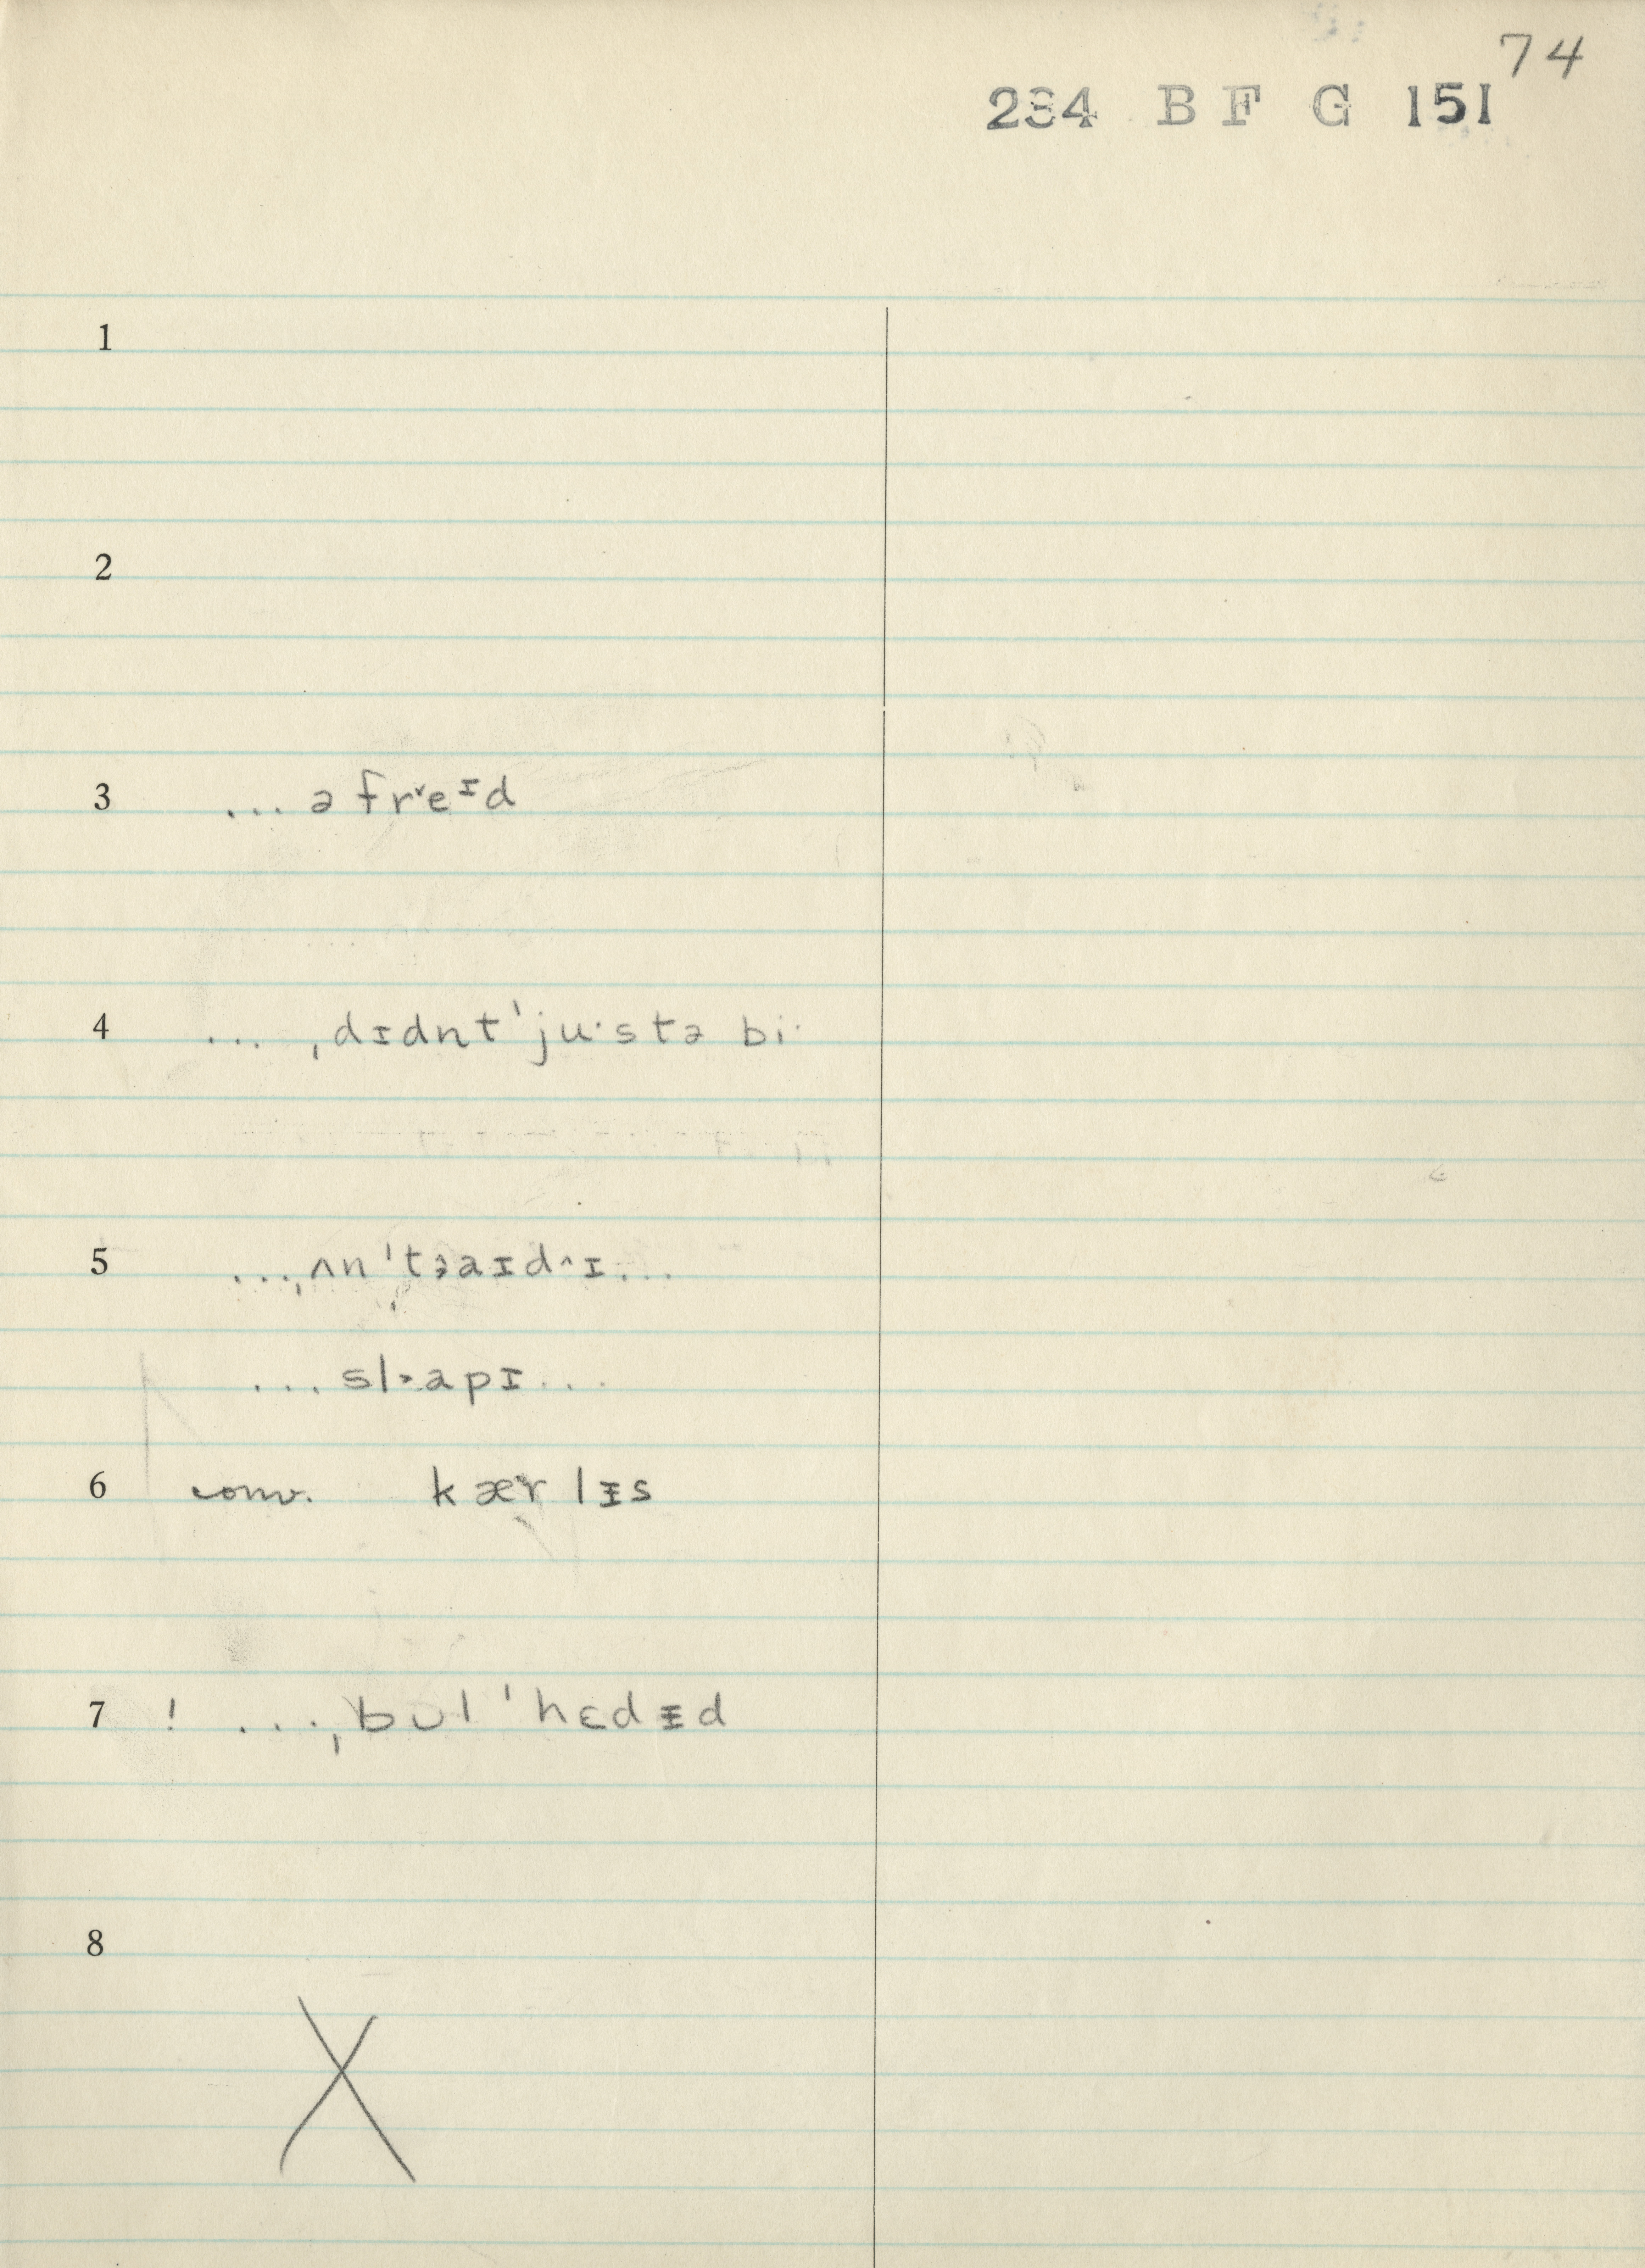 74
234 B F G 151
1
2
3 ... ə frᵛeᶦd
4 ... ˌdɪdnt ˈju·stə bi·
5 ...ˌʌn ˈtɜaɪd^ɪ...
... slɑpɪ...
6 conv. kær lɪ̵s
7 ! ...ˌbʊl ˈhɛdɪ̵d
8
X